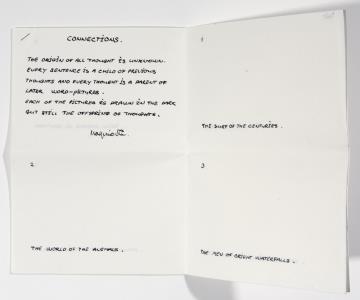 CONNECTIONS.
THE ORIGIN OF ALL THOUGHT IS UNKNOWN.
EVERY SENTENCE IS A CHILD OF PREVIOUS
THOUGHTS AND EVERY THOUGHT IS A PARENT OF
LATER WORD-PICTURES.
EACH OF THE PICTURES IS DRAWN IN THE DARK
BUT STILL THE OFFSPRING OF THOUGHTS.
1
THE DUST OF THE CENTURIES.
2
THE WORLD OF THE ANIMALS.
3
THE MEN OF BRIGHT WATERFALLS.